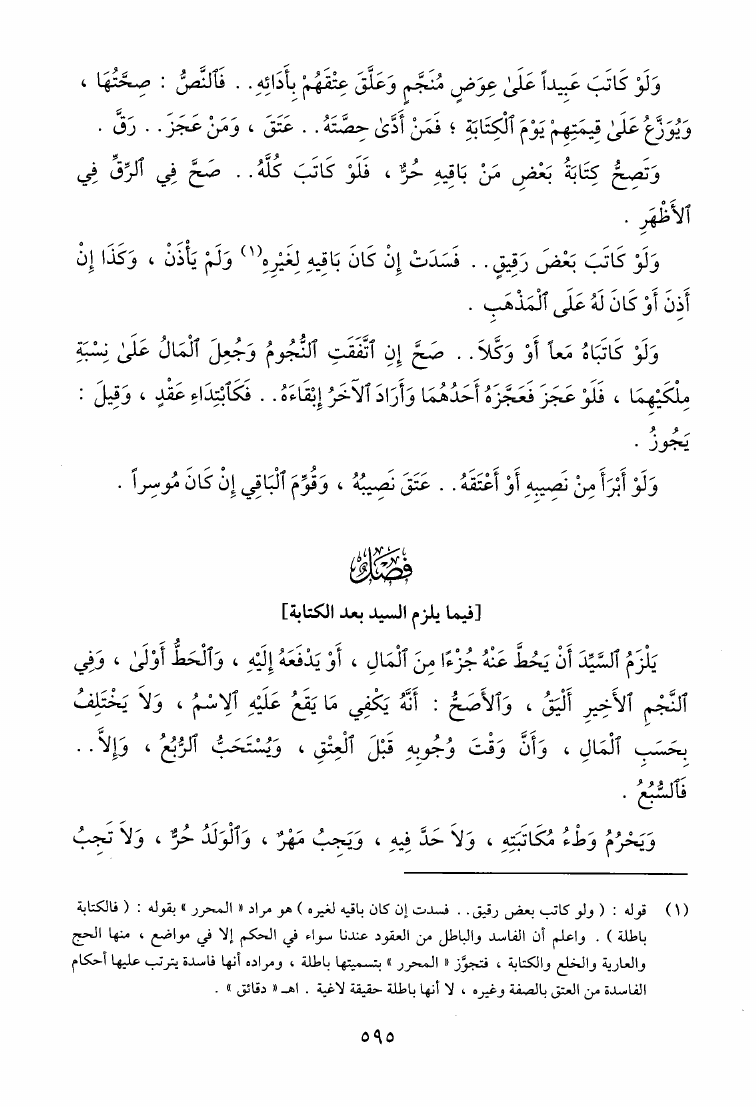 وَلَوْ كَاتَبَ عَبِيداً عَلَىٰ عِوَضٍ مُنَجَّمٍ وَعَلَّقَ عِتْقَهُمْ بِأَدَائِهِ . . فَٱلنَّصُّ : صِحَّتُهَا ،
وَيُوَزَّعُ عَلَىٰ قِيمَتِهِمْ يَوْمَ ٱلْكِتَابَةِ ؛ فَمَنْ أَدَّىٰ حِصَّتَهُ . . عَتَقَ ، وَمَنْ عَجَزَ . . رَقَّ .
وَتَصِحُّ كِتَابَةُ بَعْضِ مَنْ بَاقِيهِ حُرٌّ ، فَلَوْ كَاتَبَ كُلَّهُ . . صَحَّ فِي ٱلرِّقِّ فِي
ٱلأَظْهَرِ .
وَلَوْ كَاتَبَ بَعْضَ رَقِيقٍ . . فَسَدَتْ إِنْ كَانَ بَاقِيهِ لِغَيْرِهِ(١) وَلَمْ يَأْذَنْ ، وَكَذَا إِنْ
أَذِنَ أَوْ كَانَ لَهُ عَلَى ٱلْمَذْهَبِ .
وَلَوْ كَاتَبَاهُ مَعاً أَوْ وَكَّلاَ . . صَحَّ إِنِ ٱتَّفَقَتِ ٱلنُّجُومُ وَجُعِلَ ٱلْمَالُ عَلَىٰ نِسْبَةِ
مِلْكَيْهِمَا ، فَلَوْ عَجَزَ فَعَجَّزَهُ أَحَدُهُمَا وَأَرَادَ ٱلآخَرُ إِبْقَاءَهُ . . فَكَٱبْتِدَاءِ عَقْدٍ ، وَقِيلَ :
يَجُوزُ .
وَلَوْ أَبْرَأَ مِنْ نَصِيبِهِ أَوْ أَعْتَقَهُ . . عَتَقَ نَصِيبُهُ ، وَقُوِّمَ ٱلْبَاقِي إِنْ كَانَ مُوسِراً .
فَصْلٌ
[فيما يلزم السيد بعد الكتابة]
يَلْزَمُ ٱلسَّيِّدَ أَنْ يَحُطَّ عَنْهُ جُزْءًا مِنَ ٱلْمَالِ ، أَوْ يَدْفَعَهُ إِلَيْهِ ، وَٱلْحَطُّ أَوْلَىٰ ، وَفِي
ٱلنَّجْمِ ٱلأَخِيرِ أَلْيَقُ ، وَٱلأَصَحُّ : أَنَّهُ يَكْفِي مَا يَقَعُ عَلَيْهِ ٱلِاسْمُ ، وَلاَ يَخْتَلِفُ
بِحَسَبِ ٱلْمَالِ ، وَأَنَّ وَقْتَ وُجُوبِهِ قَبْلَ ٱلْعِتْقِ ، وَيُسْتَحَبُّ ٱلرُّبُعُ ، وَإِلاَّ . .
فَٱلسُّبُعُ .
وَيَحْرُمُ وَطْءُ مُكَاتَبَتِهِ ، وَلاَ حَدَّ فِيهِ ، وَيَجِبُ مَهْرٌ ، وَٱلْوَلَدُ حُرٌّ ، وَلاَ تَجِبُ
(١) قوله : ( ولو كاتب بعض رقيق . . فسدت إن كان باقيه لغيره ) هو مراد « المحرر » بقوله : ( فالكتابة
باطلة ) . واعلم أن الفاسد والباطل من العقود عندنا سواء في الحكم إلا في مواضع ، منها الحج
والعارية والخلع والكتابة ، فتجوَّز « المحرر » بتسميتها باطلة ، ومراده أنها فاسدة يترتب عليها أحكام
الفاسدة من العتق بالصفة وغيره ، لا أنها باطلة حقيقة لاغية . اهـ « دقائق » .
٥٩٥